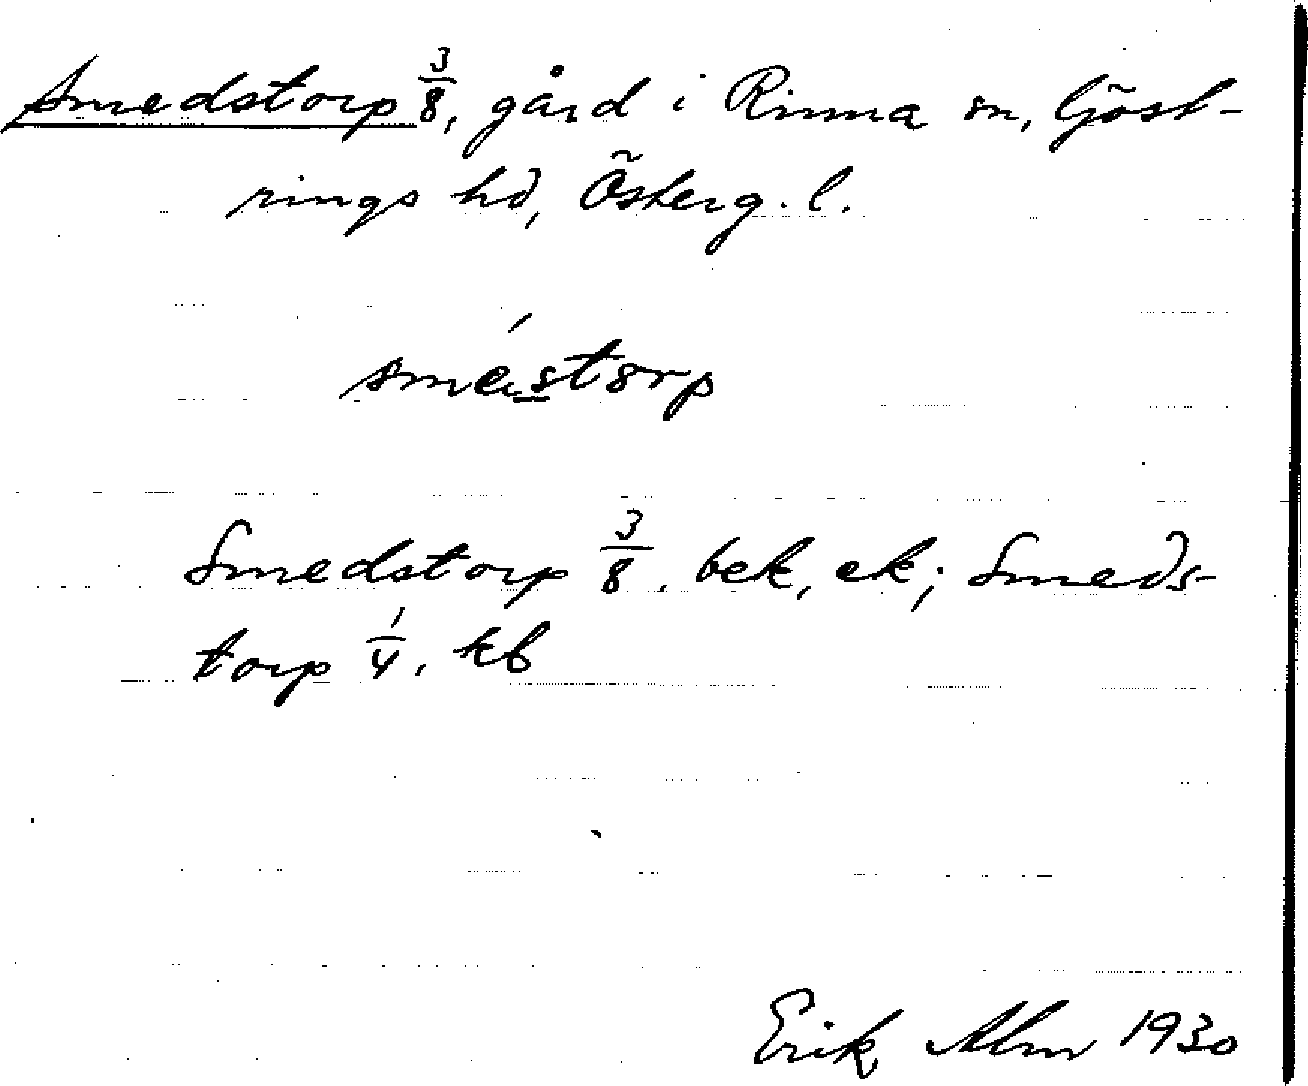 Smedstorp 3/8, gård i Rinna sn, Göst-
rings hd, Österg. l.
sméstorp
Smedstorp 3/8. bek, ek; Smeds-
torp 1/4, kb
Erik Alm 1930